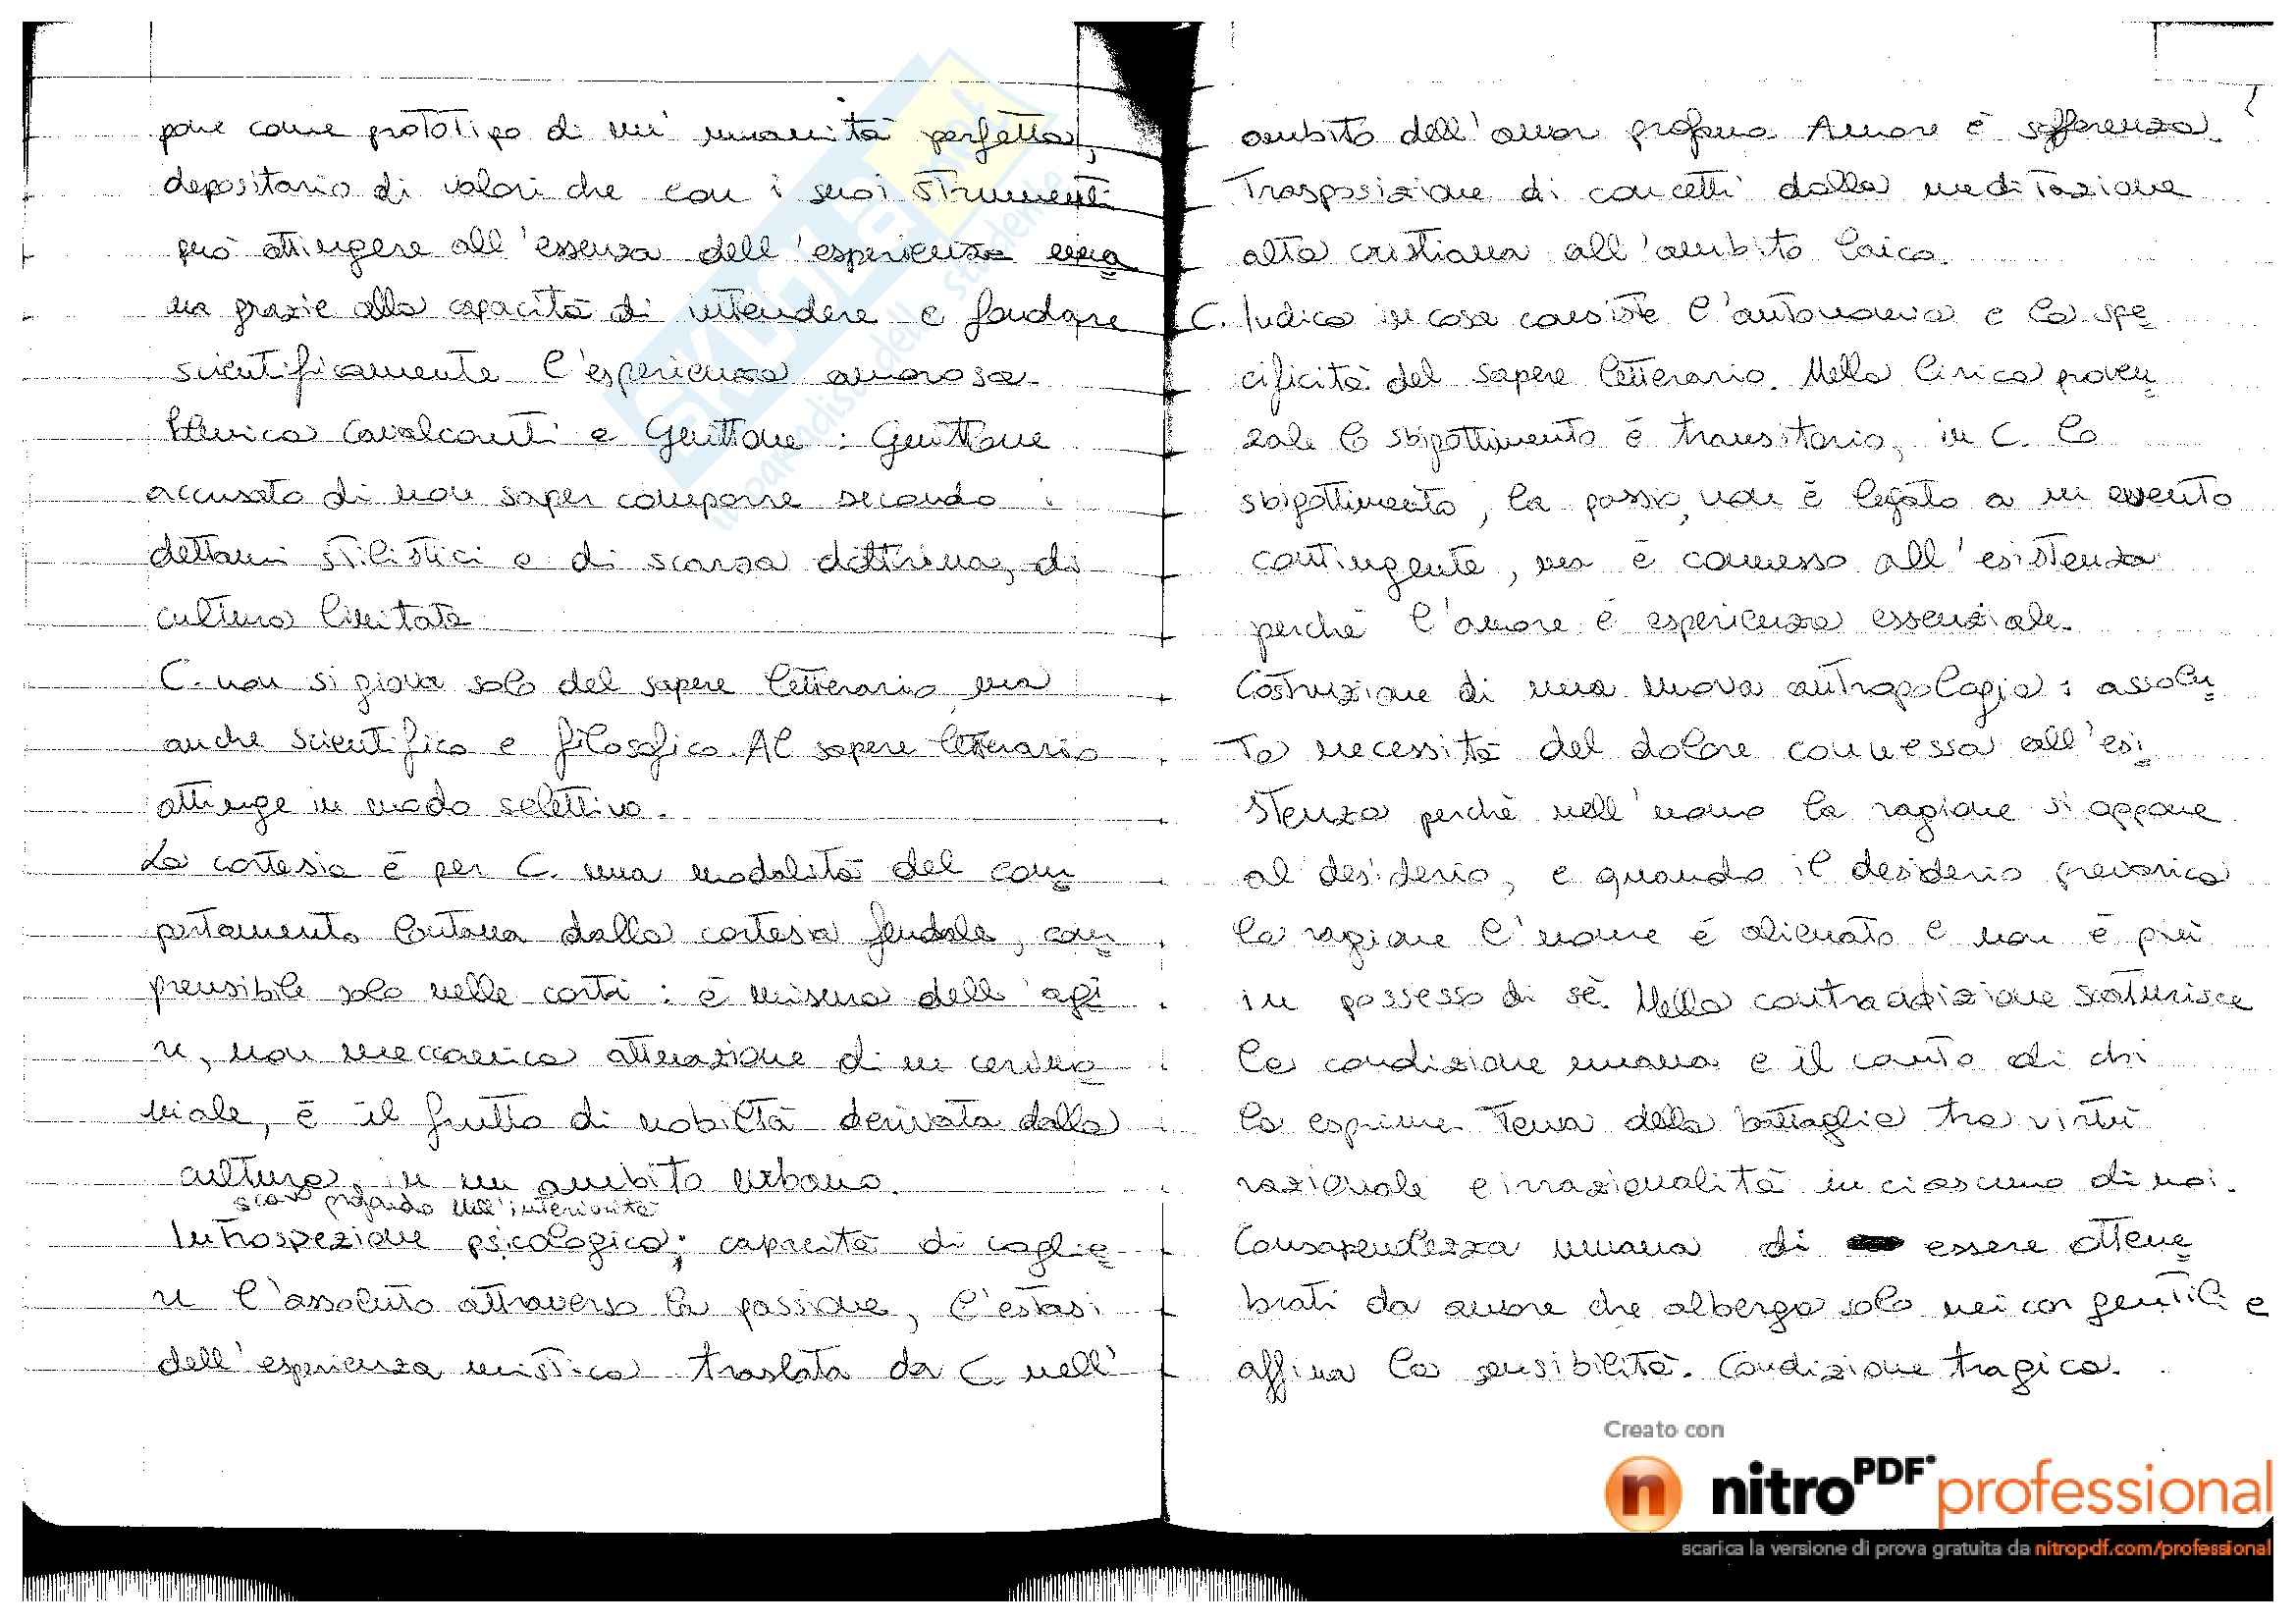 pone come prototipo di un' umanità perfetta,
depositario di valori che con i suoi strumenti
può attingere all'essenza dell'esperienza uma
na grazie alla capacità di intendere e fondare
scientificamente l'esperienza amorosa.
Polemica Cavalcanti e Guittone : Guittone
accusato di non saper comporre secondo i
dettami stilistici e di scarsa dottrina, di
cultura limitata
C. non si giova solo del sapere letterario, ma
anche scientifico e filosofico. Al sapere letterario
attinge in modo selettivo.
La cortesia è per C. una modalità del com
portamento lontana dalla cortesia feudale, com
prensibile solo nelle corti : è misura dell'agi
re, non meccanica attuazione di un cerimo
niale, è il frutto di nobiltà derivata dalla
cultura, in un ambito urbano.
scavo profondo nell'interiorità
Introspezione psicologica; capacità di coglie
re l'assoluto attraverso la passione, l'estasi
dell'esperienza mistica traslata da C. nell'
ambito dell'amor profano. Amore è sofferenza.
Trasposizione di concetti dalla meditazione
alta cristiana all'ambito laico.
C. Indica in cosa consiste l'autonomia e la spe
cificità del sapere letterario. Nella lirica proven
zale lo sbigottimento è transitorio, in C. lo
sbigottimento, la passio, non è legato a un evento
contingente, ma è connesso all'esistenza
perchè l'amore è esperienza essenziale.
Costruzione di una nuova antropologia : assolu
ta necessità del dolore connessa all'esi
stenza perchè nell'uomo la ragione si oppone
al desiderio, e quando il desiderio prevarica
la ragione l'uomo è alienato e non è più
in possesso di sè. Nella contraddizione scaturisce
la condizione umana e il canto di chi
la esprime. Tema della battaglia tra virtù
razionale e irrazionalità in ciascuno di noi.
Consapevolezza umana di essere ottene
brati da amore che alberga solo nei cor gentili e
affina la sensibilità. Condizione tragica.
Creato con
nitroPDF professional
scarica la versione di prova gratuita da nitropdf.com/professional